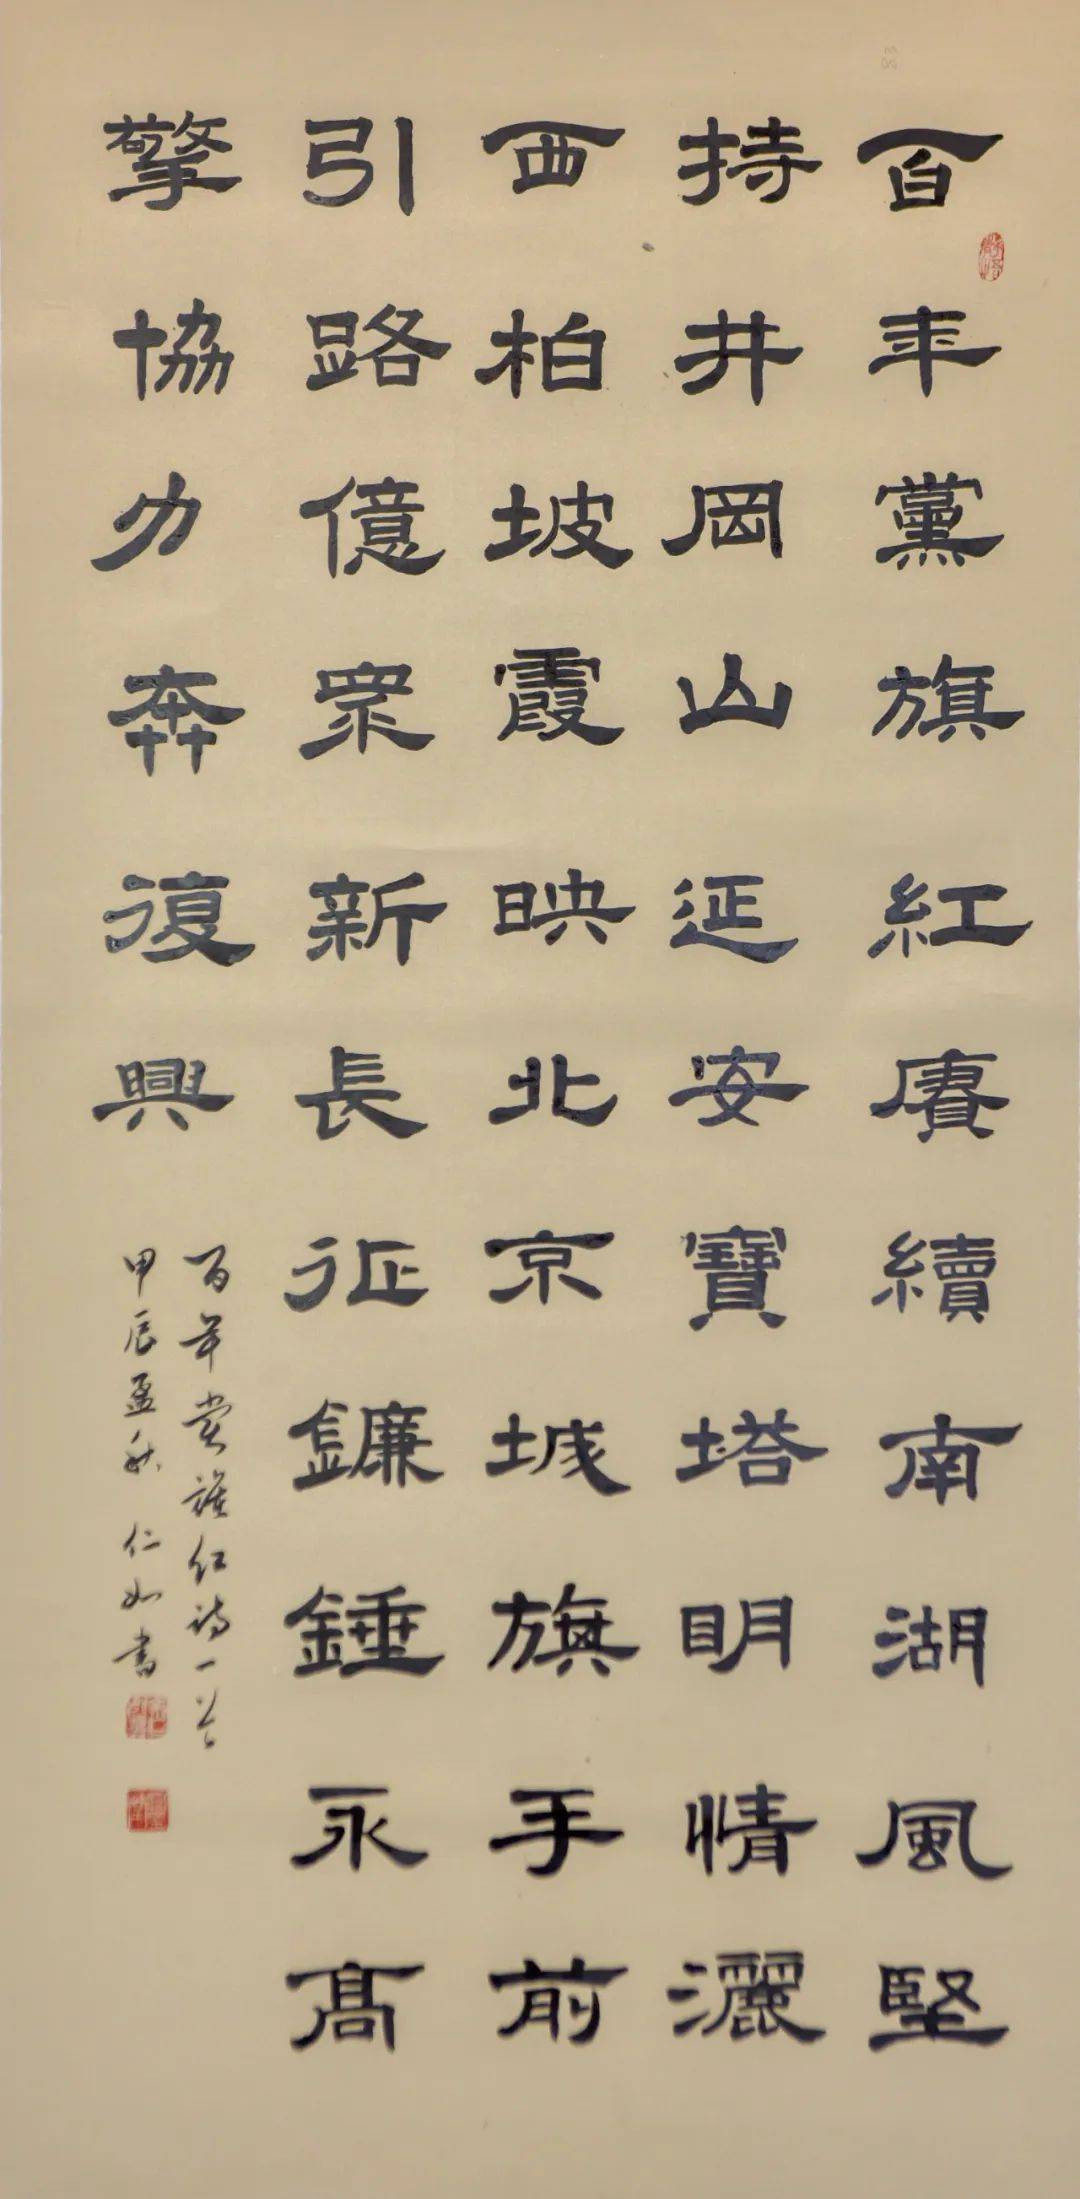 百年黨旗紅賡續南湖風堅
持井岡山延安寶塔明情灑
西柏坡霞映北京城旗手前
引路億眾新長征鐮錘永高
擎協力奔復興
百年党旗红诗一首
甲辰孟秋仁如書